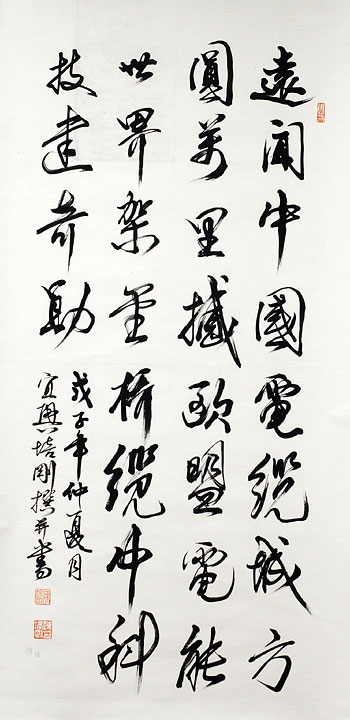 遠聞中國電纜城方
圓萬里撼歐盟電能
世界架金橋纜中科
技建奇勛
戊子年仲夏月
宜興培剛撰并書